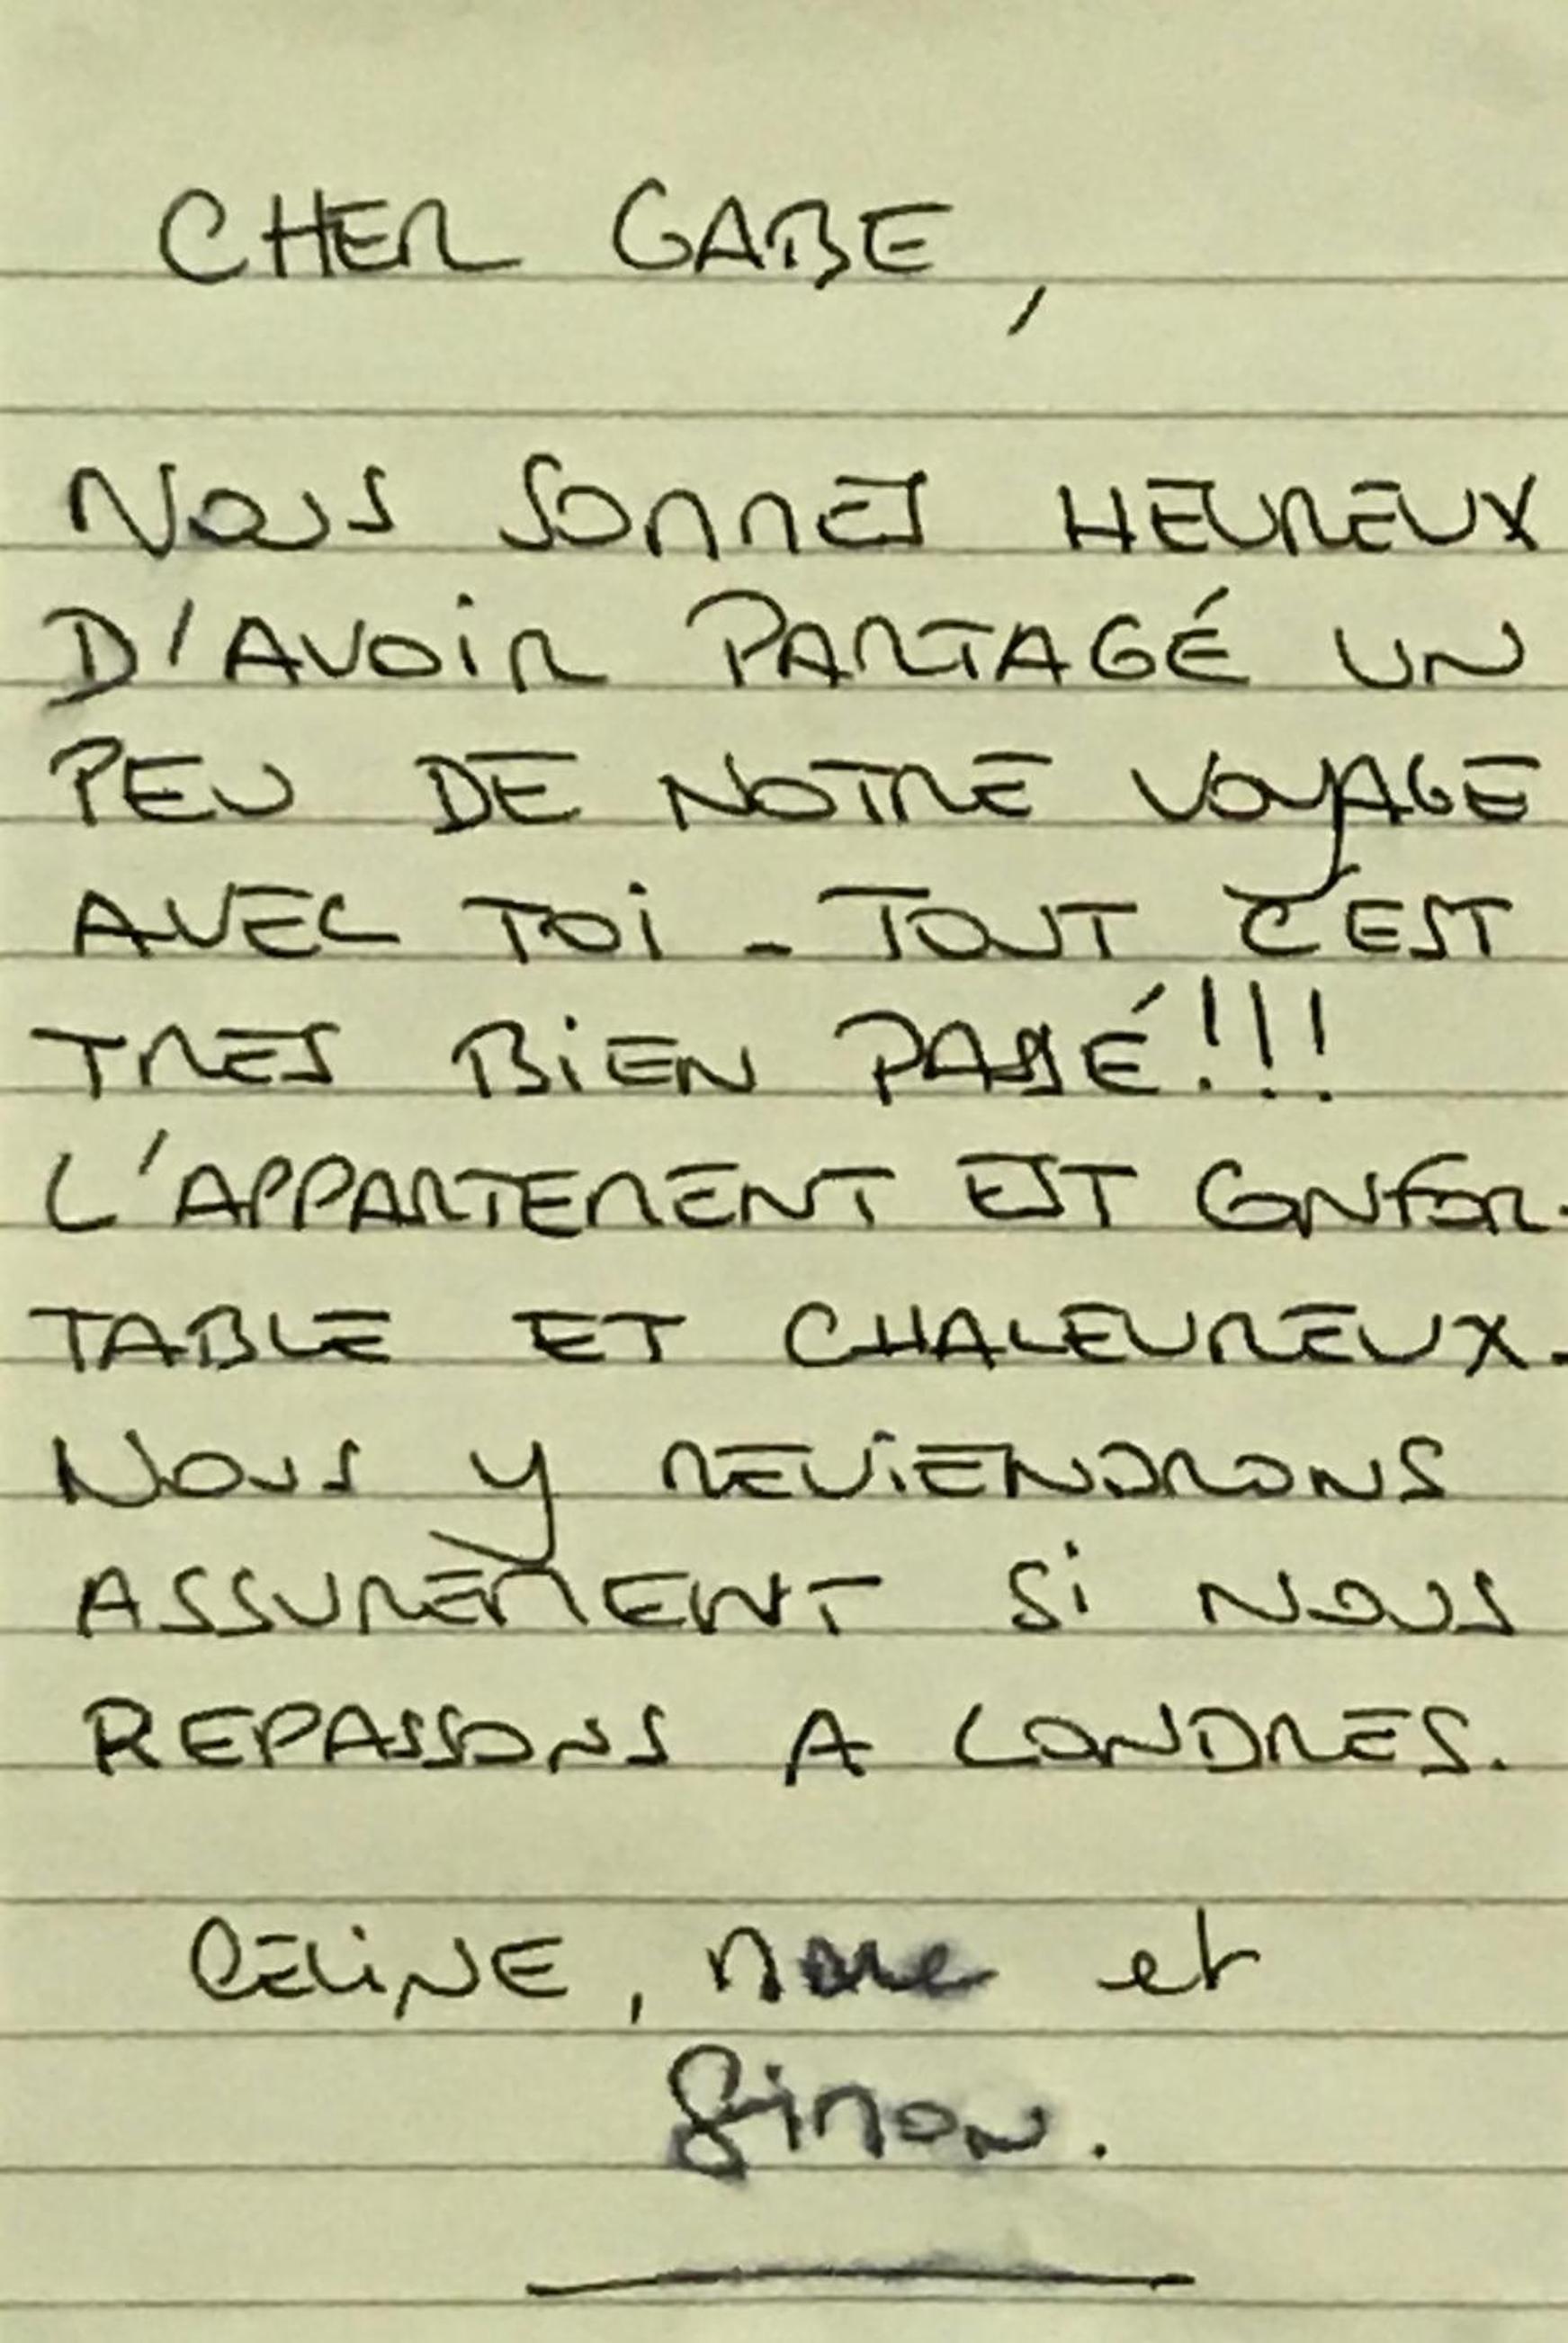 CHER GABE,
NOUS SOMMES HEUREUX
D'AVOIR PARTAGÉ UN
PEU DE NOTRE VOYAGE
AVEC TOI - TOUT C'EST
TRES BIEN PASSÉ!!!
L'APPARTEMENT EST CONFOR-
TABLE ET CHALEUREUX.
NOUS Y REVIENDRONS
ASSUREMENT Si NOUS
REPASSONS A LONDRES.
CELiNE, Marc et
Simon.